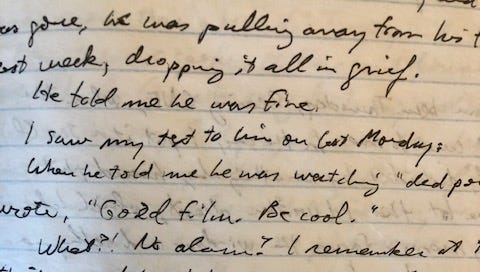 gone, he was pulling away from his
week, dropping it all in grief.
He told me he was fine.
I saw my text to him on last Monday:
When he told me he was watching "dead
wrote, "Good film. Be cool."
What?! No alarm? I remember at